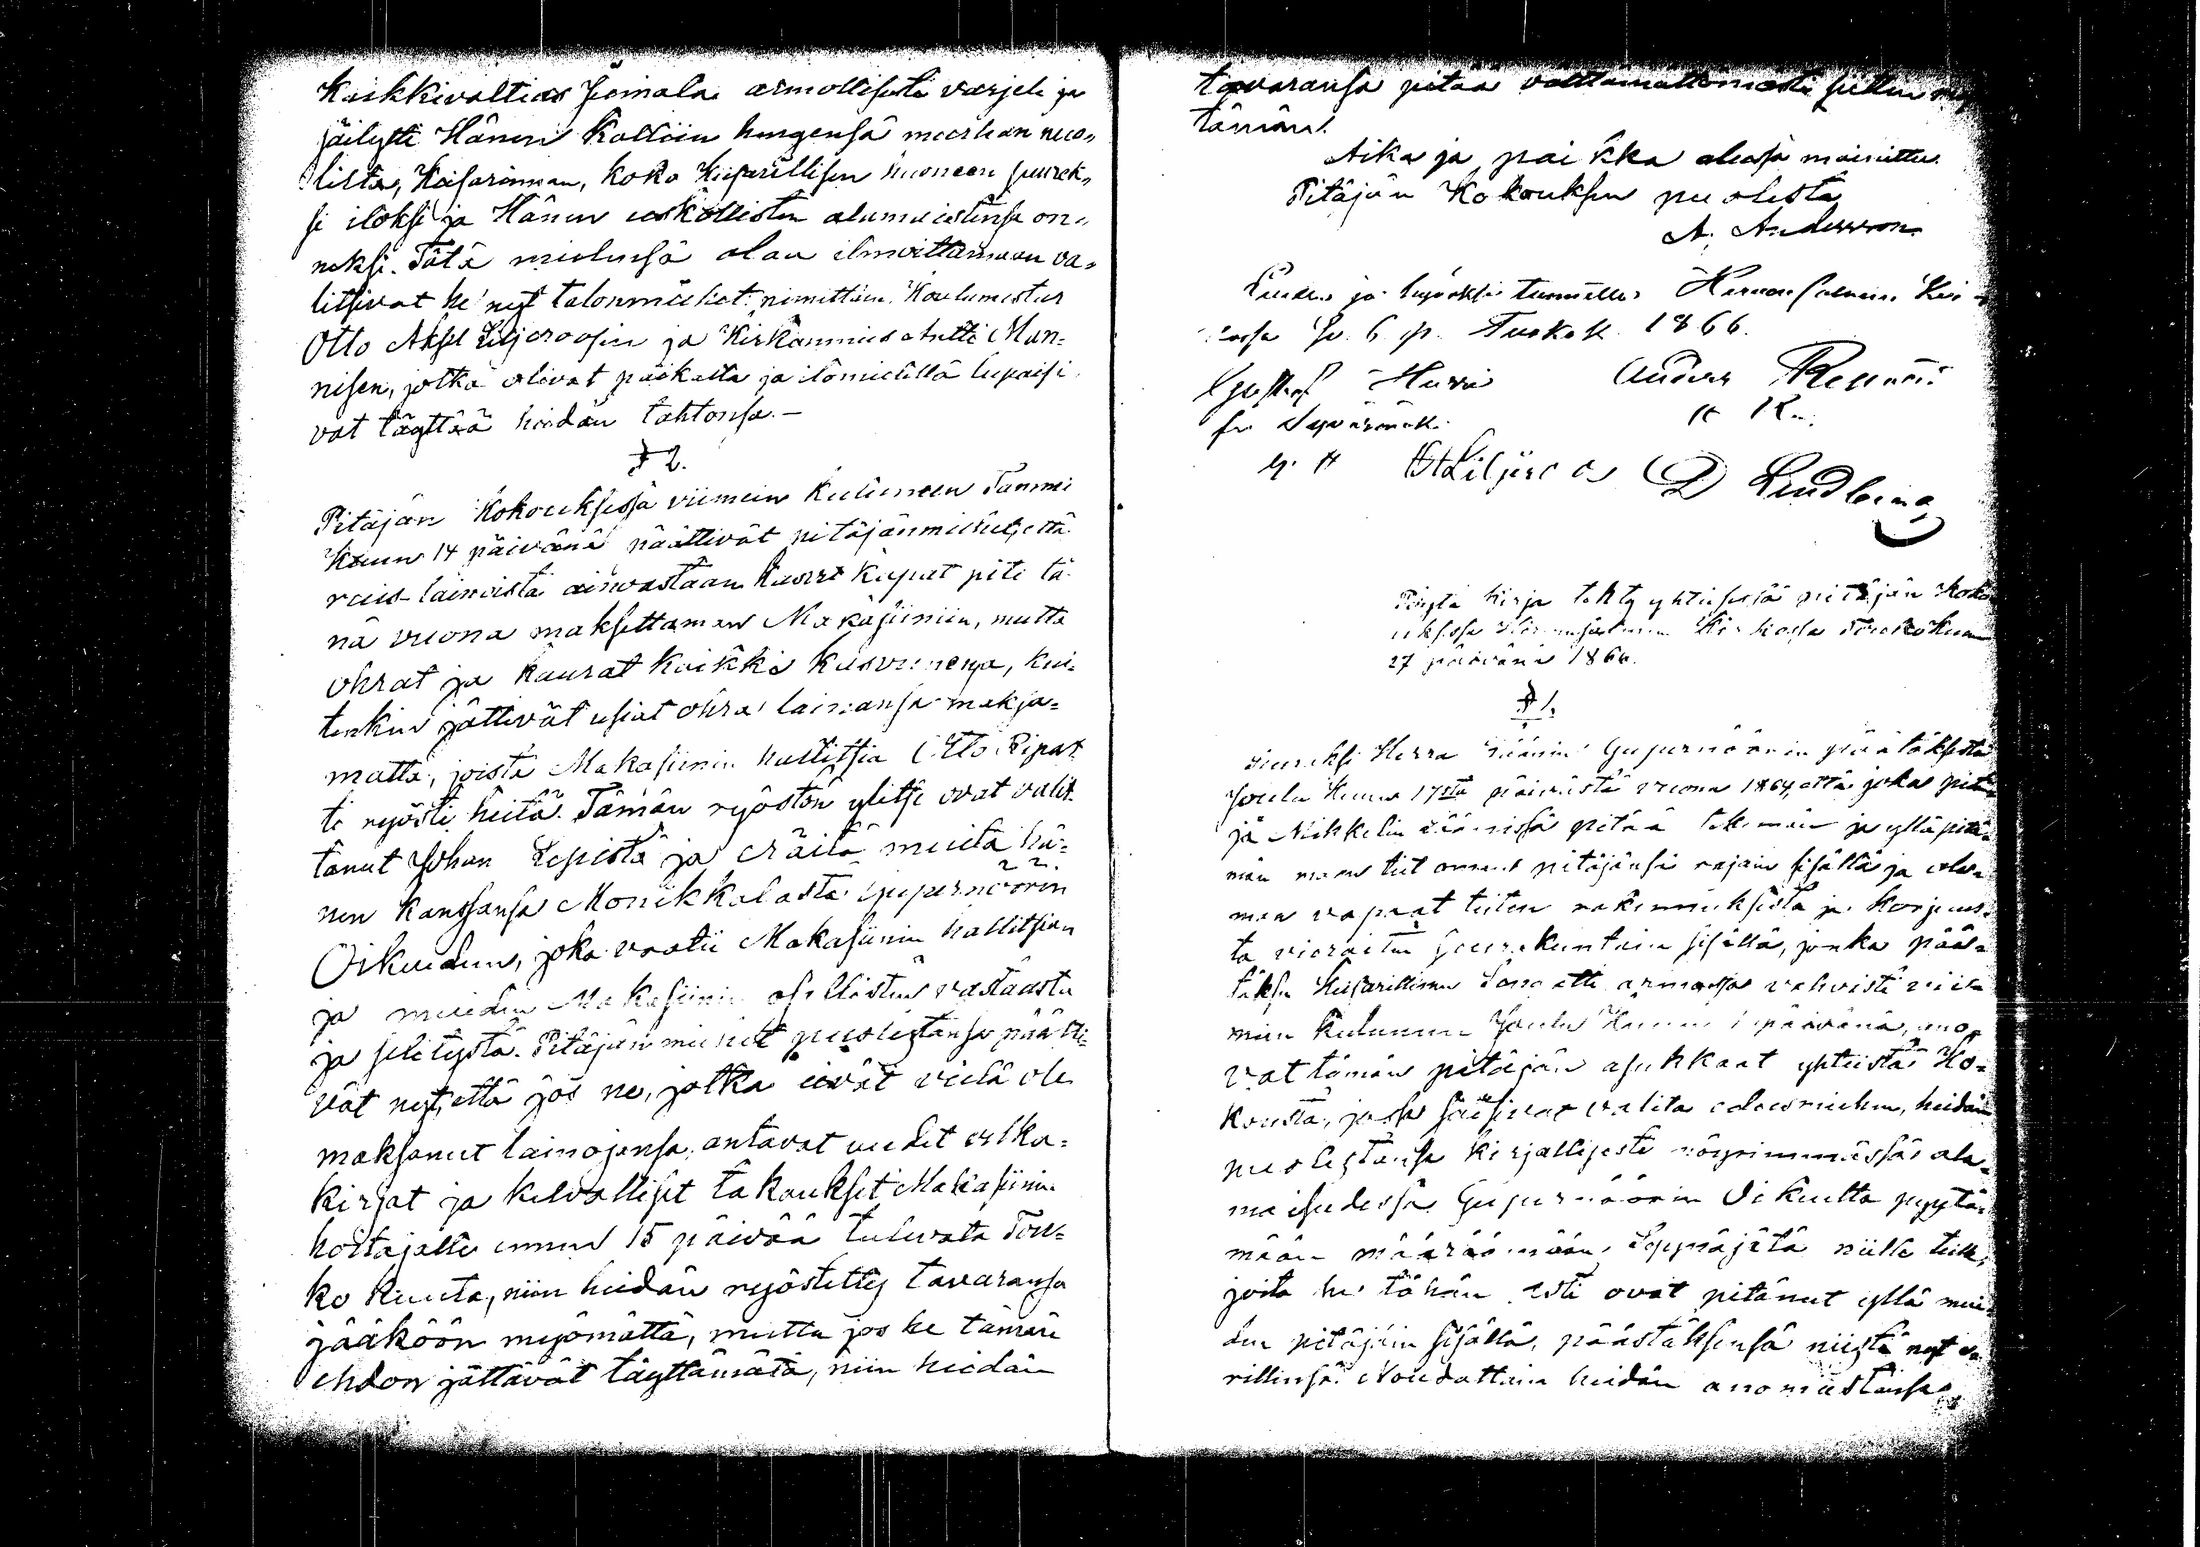 Kaikkivaltias Jumala armollisesti varjeli ja
säilytti Hänen Kalliin hengensä murhan nuo-
lilta, Keisarinnan, koko Keisarillisen huoneen suurek-
si iloksi ja Hänen uskollisten alamaistensa on-
neksi. Tätä mielensä alan ilmoittamaan va-
litsivat he nyt talonmiehet: nimittäin Koulumestar
Otto Aksel Liljeroosin ja Kirkonmies Antti Man-
nisen, jotka olivat paikalla ja ilomielellä lupaisi-
vat täyttää heidän tahtonsa. —
§ 2.
Pitäjän Kokouksessa viimein kuluneen Tammi
Kuun 14 päivänä päättivät pitäjänmiehet, että
ruis-lainoista ainoastaan kasvut kapat piti tä-
nä vuona maksettaman Makasiiniin, mutta
ohrat ja kaurat kaikki kasvuinensa, kui-
tenkin jättivät usiat ohra lainansa maksa-
matta, joista Makasiinin hallitsia Otto Ripat-
ti ryösti heitä. Tämän ryöstön ylitse ovat valit-
tanut Johan Lepistä ja eräitä muita hä-
nen kanssansa Monikkalasta Gupernöörin
Oikeuden, joka vaatii Makasiinin hallitsian
ja muiden Makasiinin osallisten vastausta
ja selitystä. Pitäjän miehet puolestansa päätti-
vät nyt, että jos ne, jotka eivät vielä ole
maksanut lainojansa, antavat uudet velka-
kirjat ja kelvolliset takaukset Makasiinin
hoitajalle ennen 15 päivää tulevata Tou-
ko kuuta, niin heidän ryöstetty tavaransa
jääköön myömättä, mutta jos he tämän
ehdon jättävät täyttämätä, niin heidän
tavaransa pitää välttämättömästi sitten
tämän.
Aika ja paikka alussa mainittu.
Pitäjän Kokouksen puolesta
A. Andersson
Luettu ja hyväksi tunnettu Kir-
kossa se. 6 p. Toukok. 1866.
Gustaf Hurri Anders Reponen
fr. Syvänniemi K Kn.
G. H OA Liljeroos D Lindberg
Pöytä kirja tehty yhteisessä pitäjän Koko-
uksessa Kirkossa Toukokuun
27 päivänä 1866.
§ 1.
Herra Läänin Gupernöörin päätöksestä
Joulu Kuun 17sta päivästä vuona 1864, että joka pitä-
jä Mikkelin läänissä pitää tekemän ja ylläpitä-
män maan tiet omansa pitäjänsä rajain sisällä ja ole-
man vapaat teiten rakennuksista ja korjuus-
ta vieraitten Seurakuntain sisällä, jonka pää-
töksen Keisarillinen Senaatti armossa vahvisti viime-
min kuluneen Joulu Kuun päivänä, ano-
vat tämän pitäjän asukkaat yhteistä Ko-
kousta, jossa saisivat valita edusmiehen, heidän
puolestansa kirjallisesti nöyrimmässä ala-
maisudessa Gupernöörin Oikeutta pyytä-
mään määräämään Loppiajata niille teille,
joita he tähän asti ovat pitänut yllä mui-
den pitäjäin sisällä, päästäksensä niistä nyt
rillensä. Noudattain heidän anomustansa,